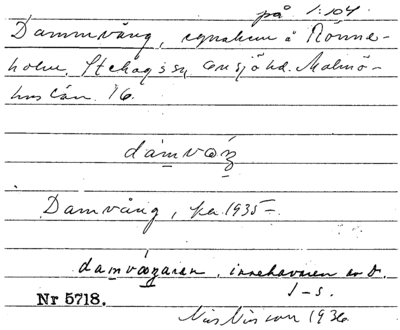 på 1:104.
Dammvång, egnahem å Rönne-
holm, Stehag ssn Onsjö hd. Malmö-
hus län. 16.
damvåŋ
Damvång, ka 1935–.
damvåŋaren, innehavaren av D.
J–s.
Nr 5718.
Nils Nilsson 1936